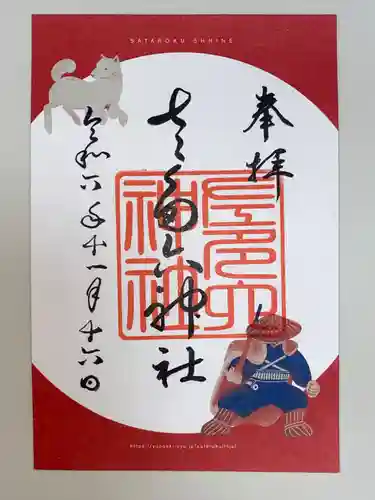 SATAROKU SHRINE
奉拝
左多六神社
令和六年十一月十六日
左多六
神社